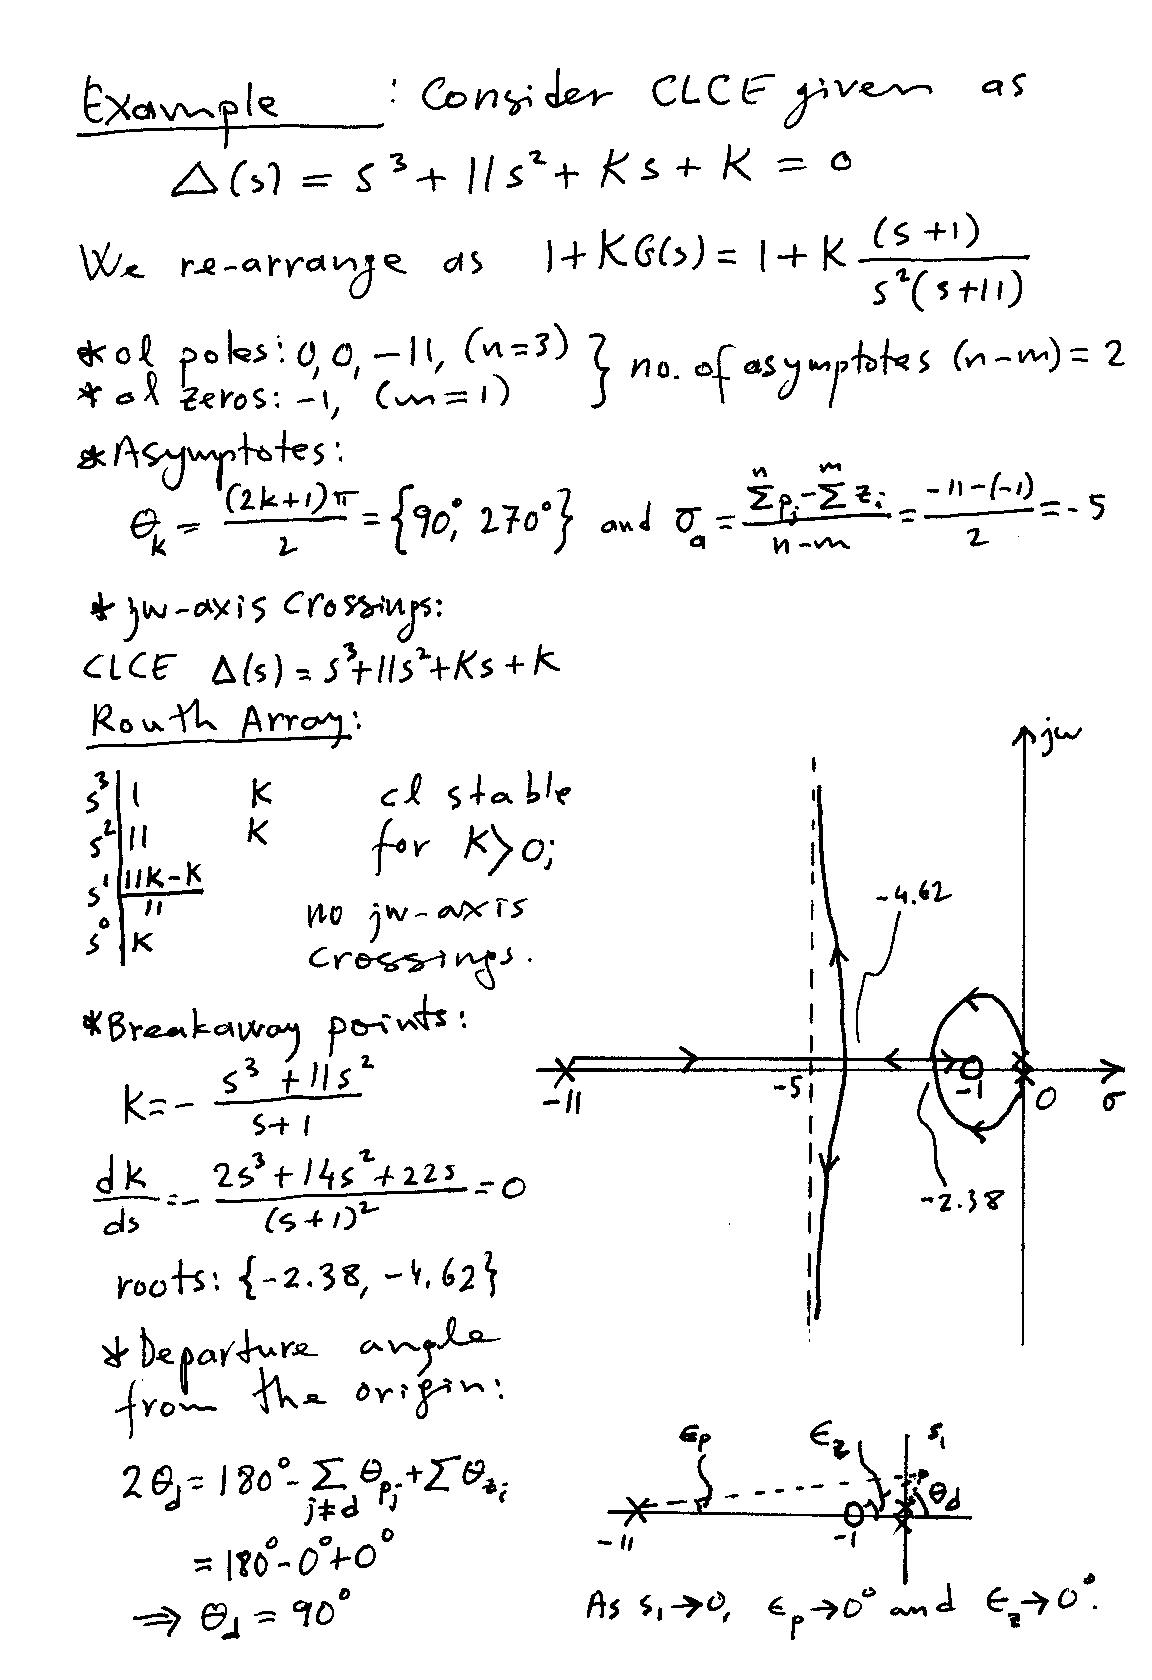 Example : Consider CLCE given as
Δ(s) = s³ + 11s² + Ks + K = 0
We re-arrange as 1+KG(s) = 1+K (s+1) / s²(s+11)
* ol poles: 0, 0, -11, (n=3) } no. of asymptotes (n-m) = 2
* ol zeros: -1, (m=1)
* Asymptotes:
θ_k = (2k+1)π / 2 = {90°, 270°} and σ_a = (Σⁿ p_j - Σᵐ z_i) / (n-m) = (-11-(-1)) / 2 = -5
* jw-axis crossings:
CLCE Δ(s) = s³+11s²+Ks+K
Routh Array:
s³ | 1 K
s² | 11 K
s¹ | (11K-K) / 11
s⁰ | K
cl stable
for K>0;
no jw-axis
crossings.
* Breakaway points:
K = - (s³ + 11s²) / (s+1)
dK/ds = - (2s³ + 14s² + 22s) / (s+1)² = 0
roots: {-2.38, -4.62}
* Departure angle
from the origin:
2θ_d = 180° - Σ_{j≠d} θ_{p_j} + Σ θ_{z_i}
= 180° - 0° + 0°
⇒ θ_d = 90°
jw
-4.62
-11
-5
-1
0
σ
-2.38
ε_p
ε_z
s₁
θ_d
-11
-1
As s₁→0, ε_p→0° and ε_z→0°.